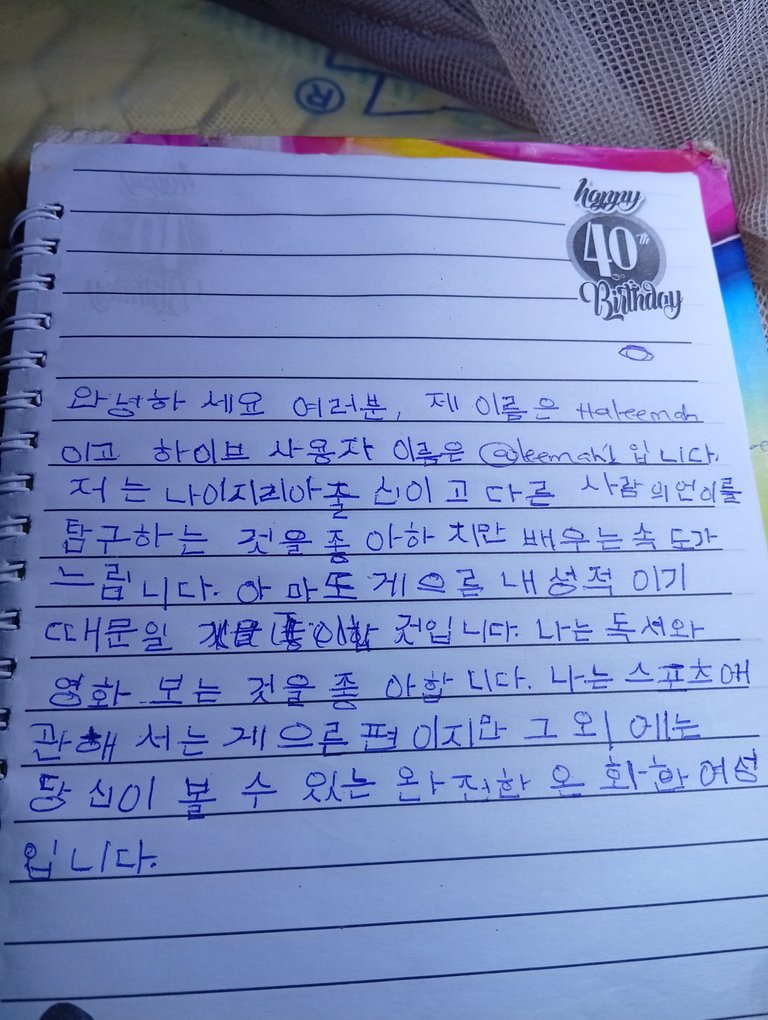 ®
happy
40th
Birthday
안녕하 세요 여러분, 제 이름은 Haleemah
이고 하이브 사용자 이름은 @leemah1 입 니다.
저 는 나이지리아 출 신이 고 다른 사람의 언어를
탐구하는 것을 좋 아하 지만 배우는 속 도가
느립니다. 아 마도 게으를 내 성적 이기
때문일 것입니다. 나는 독서와
영화 보는 것을 좋 아합 니다. 나는 스포츠에
관해 서는 게으른 편 이지만 그 외 에는
당 신이 볼 수 있는 완 전한 온 화한 여성
입니다.